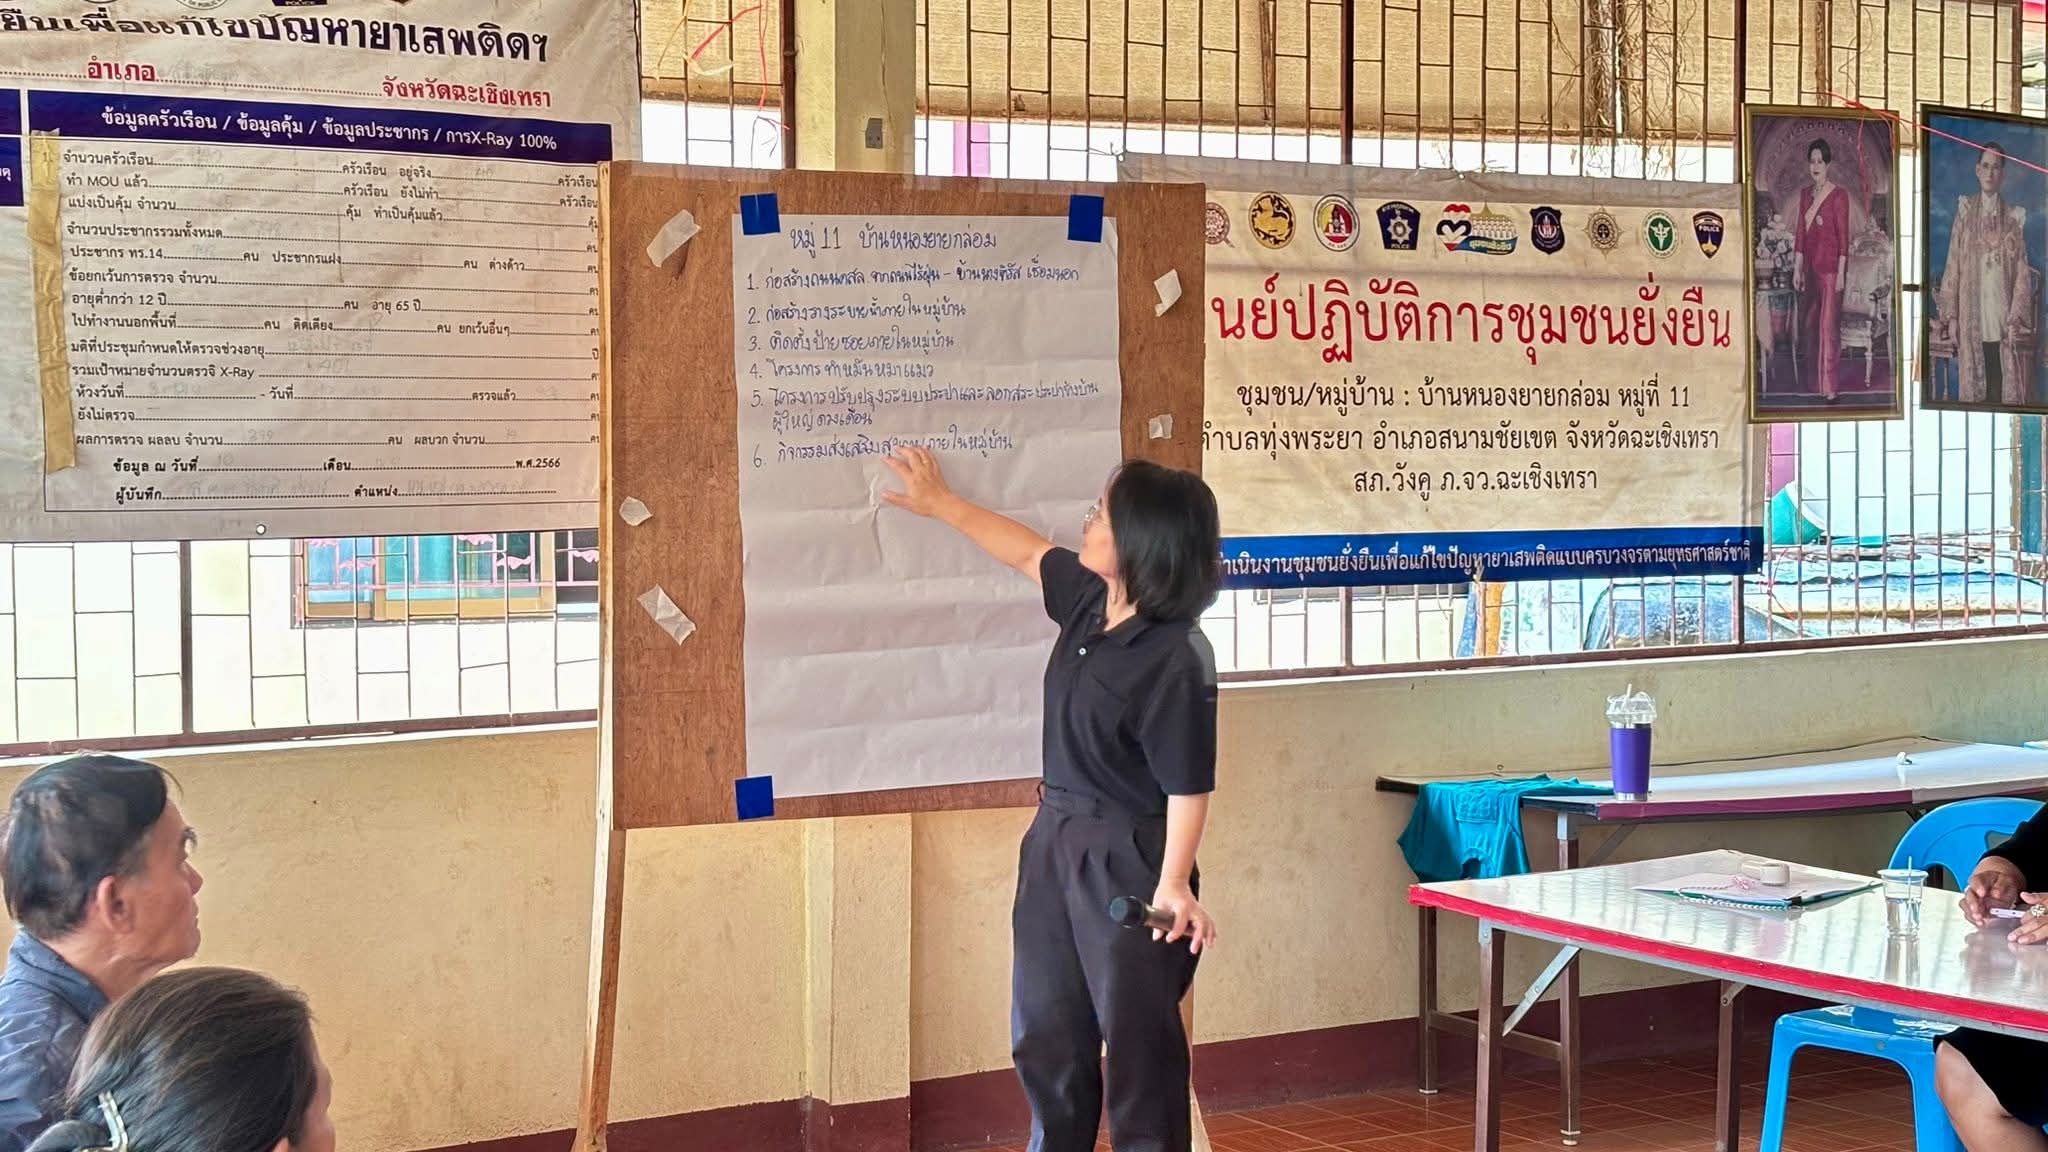 ยืนเพื่อแก้ไขปัญหายาเสพติดฯ
อำเภอ
จังหวัดฉะเชิงเทรา
ข้อมูลครัวเรือน / ข้อมูลคุ้ม / ข้อมูลประชากร / การX-Ray 100%
จำนวนครัวเรือน ครัวเรือน อยู่จริง ครัวเรือน
ทำ MOU แล้ว ครัวเรือน ยังไม่ทำ ครัวเรือน
แบ่งเป็นคุ้ม จำนวน 5 คุ้ม ทำเป็นคุ้มแล้ว 5
จำนวนประชากรรวมทั้งหมด คน
ประชากร ทร.14 คน ประชากรแฝง คน ต่างด้าว คน
ข้อยกเว้นการตรวจ จำนวน
อายุต่ำกว่า 12 ปี คน อายุ 65 ปี
ไปทำงานนอกพื้นที่ คน ติดเตียง คน ยกเว้นอื่นๆ
มติที่ประชุมกำหนดให้ตรวจช่วงอายุ ปี
รวมเป้าหมายจำนวนตรวจิ X-Ray 401
ห้วงวันที่ - วันที่ ตรวจแล้ว
ยังไม่ตรวจ
ผลการตรวจ ผลลบ จำนวน 399 คน ผลบวก จำนวน
ข้อมูล ณ วันที่ 10 เดือน พ.ศ.2566
ผู้บันทึก ตำแหน่ง
หมู่ 11 บ้านหนองยายกล่อม
1. ก่อสร้างถนนคสล. จากถนนไร้ฝุ่น - บ้าน เชื่อมนอก
2. ก่อสร้างรางระบายน้ำภายในหมู่บ้าน
3. ติดตั้งป้ายซอยภายในหมู่บ้าน
4. โครงการทำหมันหมาแมว
5. โครงการปรับปรุงระบบประปาและลอกสระประปาข้างบ้าน
ผู้ใหญ่ดวงเดือน
6. กิจกรรมส่งเสริม ภายในหมู่บ้าน
POLICE
POLICE
นย์ปฏิบัติการชุมชนยั่งยืน
ชุมชน/หมู่บ้าน : บ้านหนองยายกล่อม หมู่ที่ 11
ตำบลทุ่งพระยา อำเภอสนามชัยเขต จังหวัดฉะเชิงเทรา
สภ.วังคู ภ.จว.ฉะเชิงเทรา
เนินงานชุมชนยั่งยืนเพื่อแก้ไขปัญหายาเสพติดแบบครบวงจรตามยุทธศาสตร์ชาติ